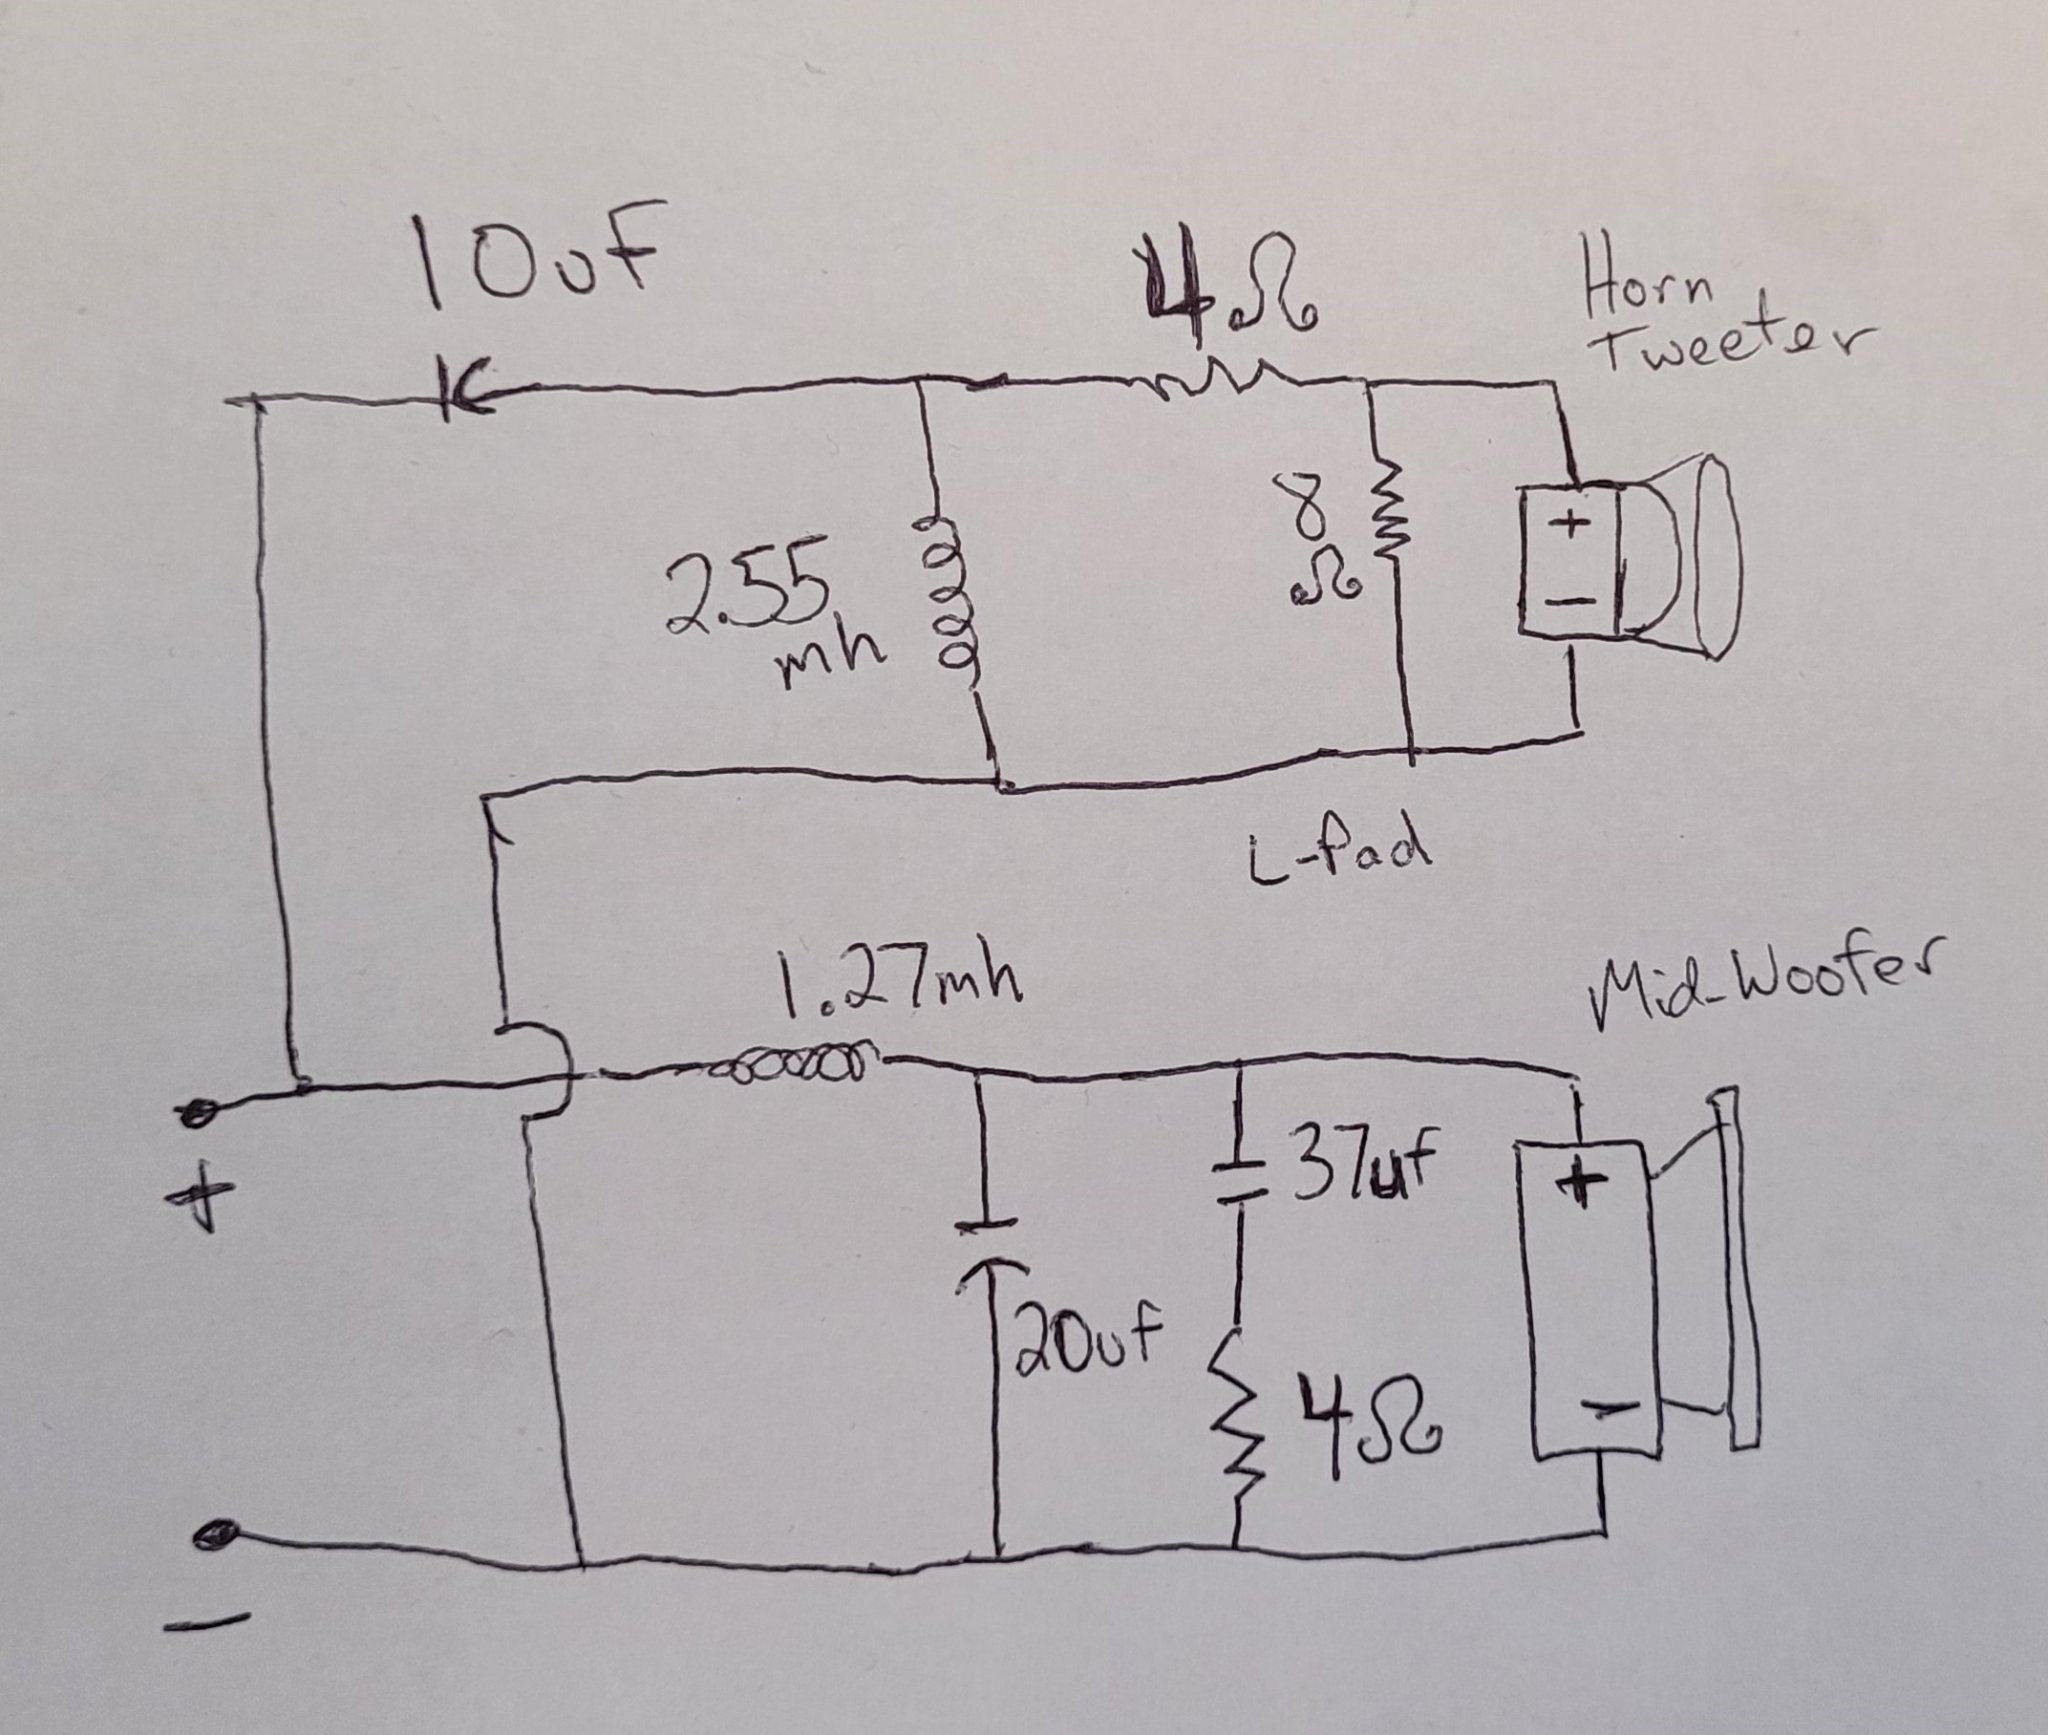 10uF
4Ω
Horn
Tweeter
+
−
8
Ω
2.55
mh
L-Pad
1.27mh
Mid-Woofer
+
37uf
+
20uf
4Ω
−
−